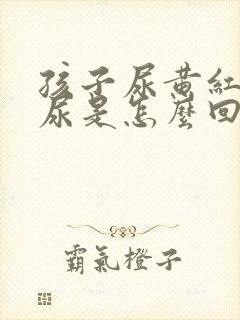 孩子尿黄紅
尿是怎麼回
霸氣橙子